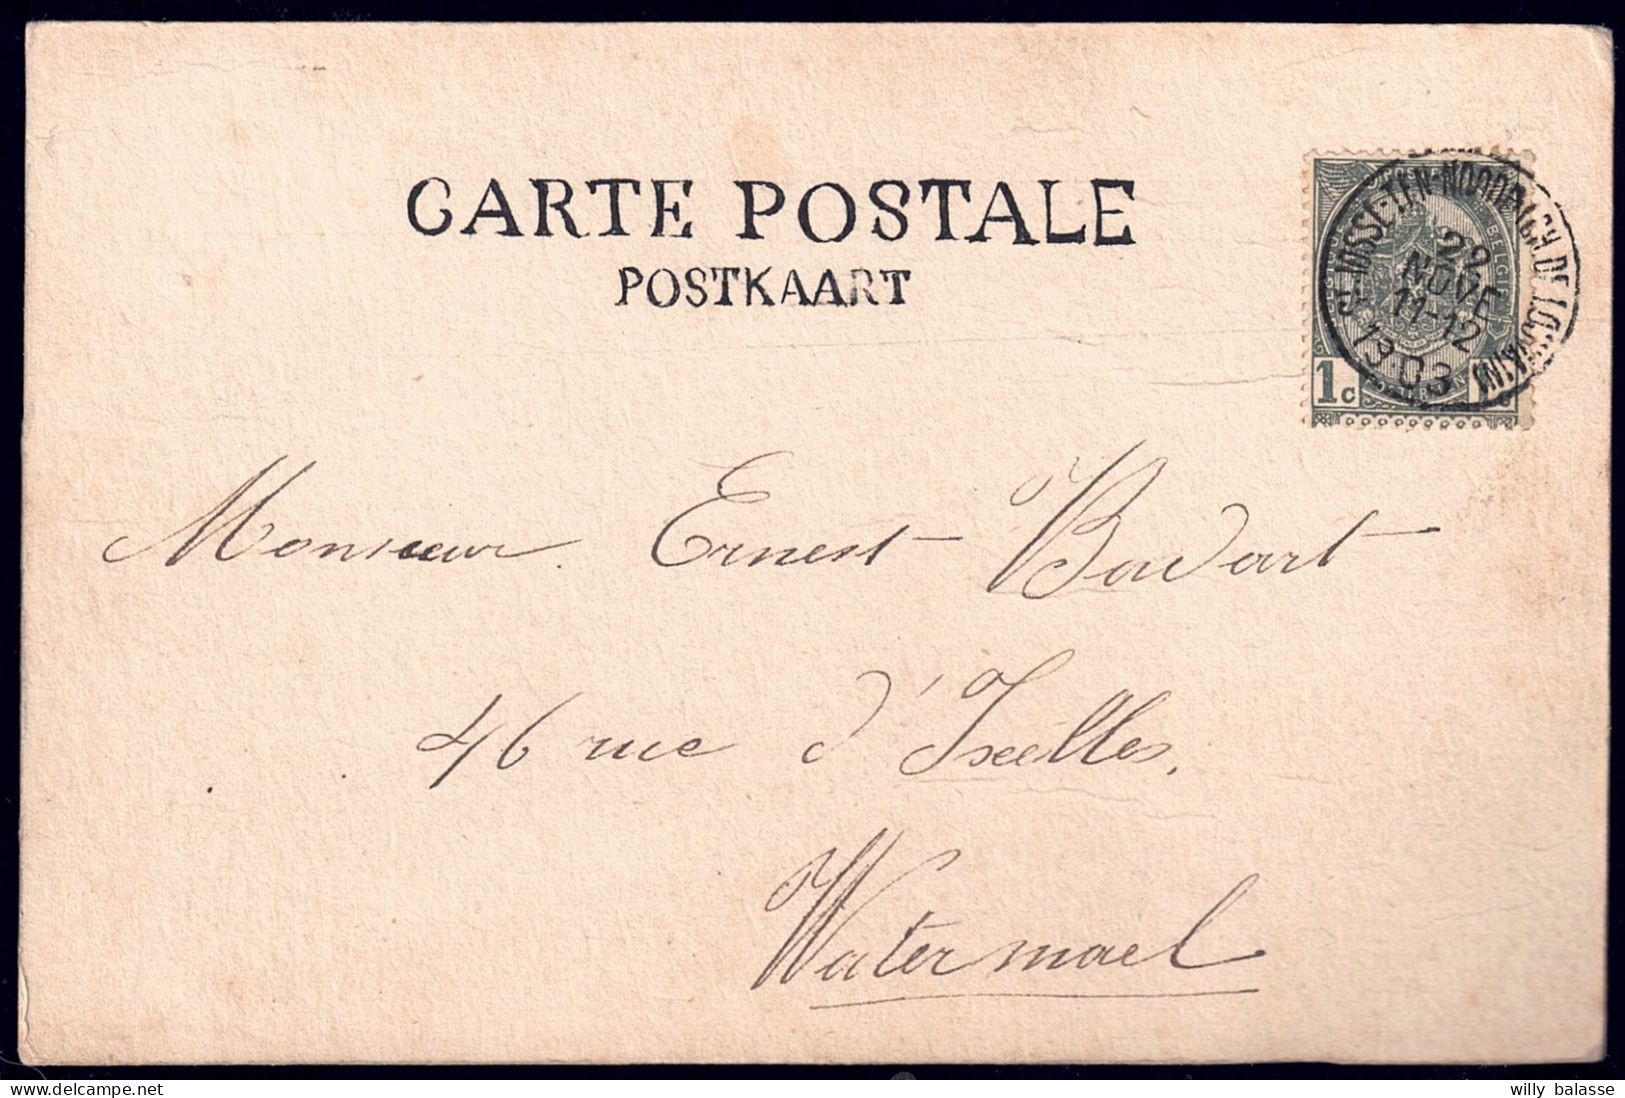 CARTE POSTALE
POSTKAART
ST-JOSSE-TEN-NOODE (CH. DE LOUVAIN)
29
NOVE
11-12
1903
BELGIË
1c
Monsieur Ernest Bavart
46 rue d'Ixelles.
Watermael
willy balasse